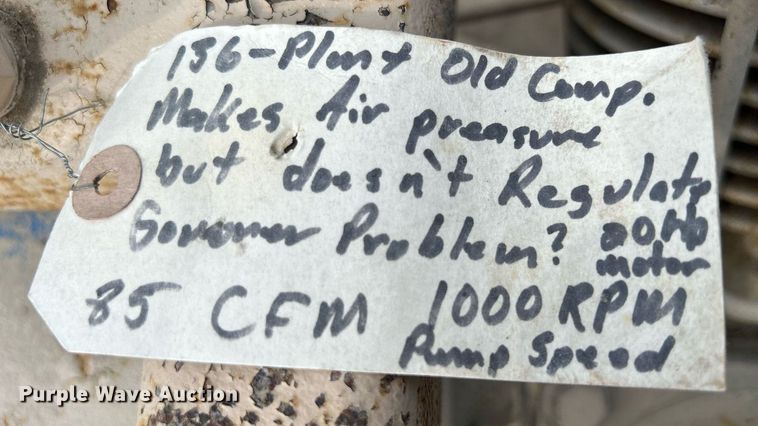 156-Plant Old Comp.
Makes Air preasure
but doesn't Regulate
Govoner Problem? 20HP
motor
85 CFM 1000 RPM
Pump Speed
Purple Wave Auction